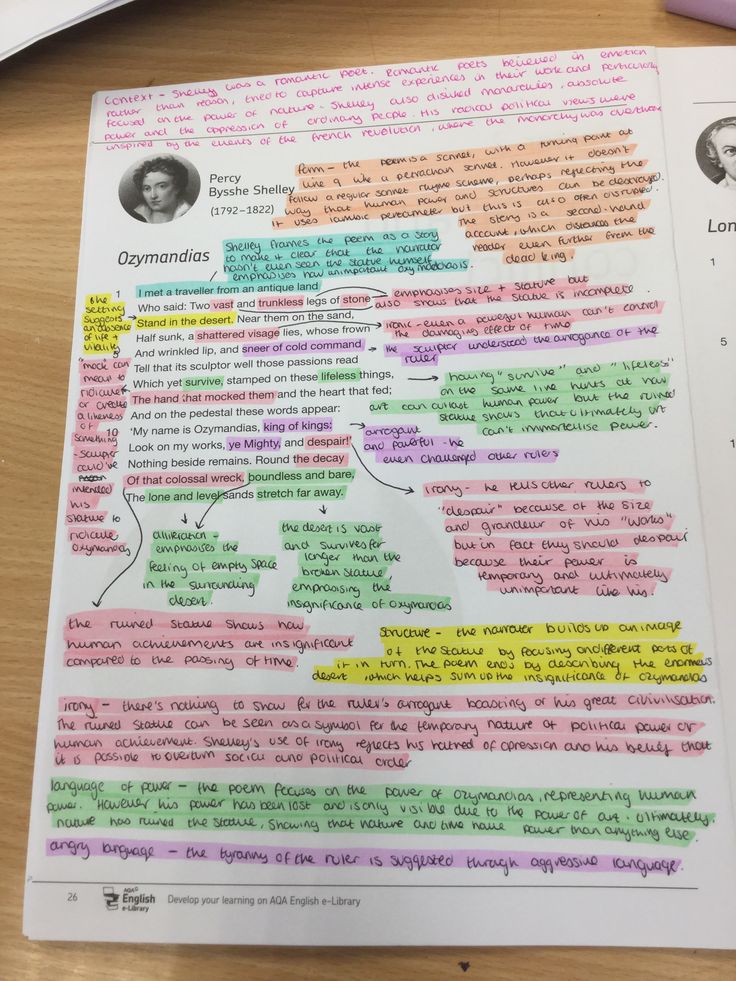 Context - Shelley was a romantic poet. Romantic poets believed in emotion
rather than reason, tried to capture intense experiences in their work and particularly
focused on the power of nature. Shelley also disliked monarchies, absolute
power and the oppression of ordinary people. His radical political views were
inspired by the events of the french revolution, where the monarchy was overthrown
Percy
Bysshe Shelley
(1792–1822)
Form - the poem is a sonnet, with a turning point at
line 9 like a petrachan sonnet. However it doesn't
follow a regular sonnet rhyme scheme, perhaps reflecting the
way that human power and structures can be destroyed.
It uses iambic pentameter but this is also often disrupted.
The story is a second-hand
account, which distances the
reader even further from the
dead king.
Ozymandias
Shelley frames the poem as a story
to make it clear that the narrator
hasn't even seen the statue himself
emphasises how unimportant ozymandias is.
1 I met a traveller from an antique land
Who said: Two vast and trunkless legs of stone
Stand in the desert. Near them on the sand,
Half sunk, a shattered visage lies, whose frown
5 And wrinkled lip, and sneer of cold command
Tell that its sculptor well those passions read
Which yet survive, stamped on these lifeless things,
The hand that mocked them and the heart that fed;
And on the pedestal these words appear:
10 'My name is Ozymandias, king of kings:
Look on my works, ye Mighty, and despair!'
Nothing beside remains. Round the decay
Of that colossal wreck, boundless and bare,
The lone and level sands stretch far away.
the
setting
suggests
an absence
of life +
vitality
"mock" can
mean to
ridicule
or create
a likeness
of
something
- sculptor
could've
intended
his
statue to
ridicule
ozymandias
emphasises size + stature but
also shows that the statue is incomplete.
ironic - even a powerful human can't control
the damaging effects of time
the sculptor understood the arrogance of the
ruler
having "survive" and "lifeless"
on the same line hints at how
art can outlast human power but the ruined
statue shows that ultimately art
can't immortalise power.
arrogant
and powerful - he
even challenged other rulers
irony - he tells other rulers to
"despair" because of the size
and grandeur of his "works"
but in fact they should despair
because their power is
temporary and ultimately
unimportant like his.
alliteration -
emphasises the
feeling of empty space
in the surrounding
desert.
the desert is vast
and survives far
longer than the
broken statue,
emphasising the
insignificance of ozymandias
the ruined statue shows how
human achievements are insignificant
compared to the passing of time.
Structure - the narrator builds up an image
of the statue by focusing on different parts of
it in turn. The poem ends by describing the enormous
desert, which helps sum up the insignificance of ozymandias
irony - there's nothing to show for the ruler's arrogant boasting or his great civivilisation.
The ruined statue can be seen as a symbol for the temporary nature of political power or
human achievement. Shelley's use of irony reflects his hatred of opression and his belief that
it is possible to overturn social and political order
language of power - the poem focuses on the power of ozymandias, representing human
power. However his power has been lost and is only visible due to the power of art. Ultimately,
nature has ruined the statue, showing that nature and time have power than anything else.
angry language - the tyranny of the ruler is suggested through aggressive language.
26 AQA English e-Library Develop your learning on AQA English e-Library
Lon
1
5
1